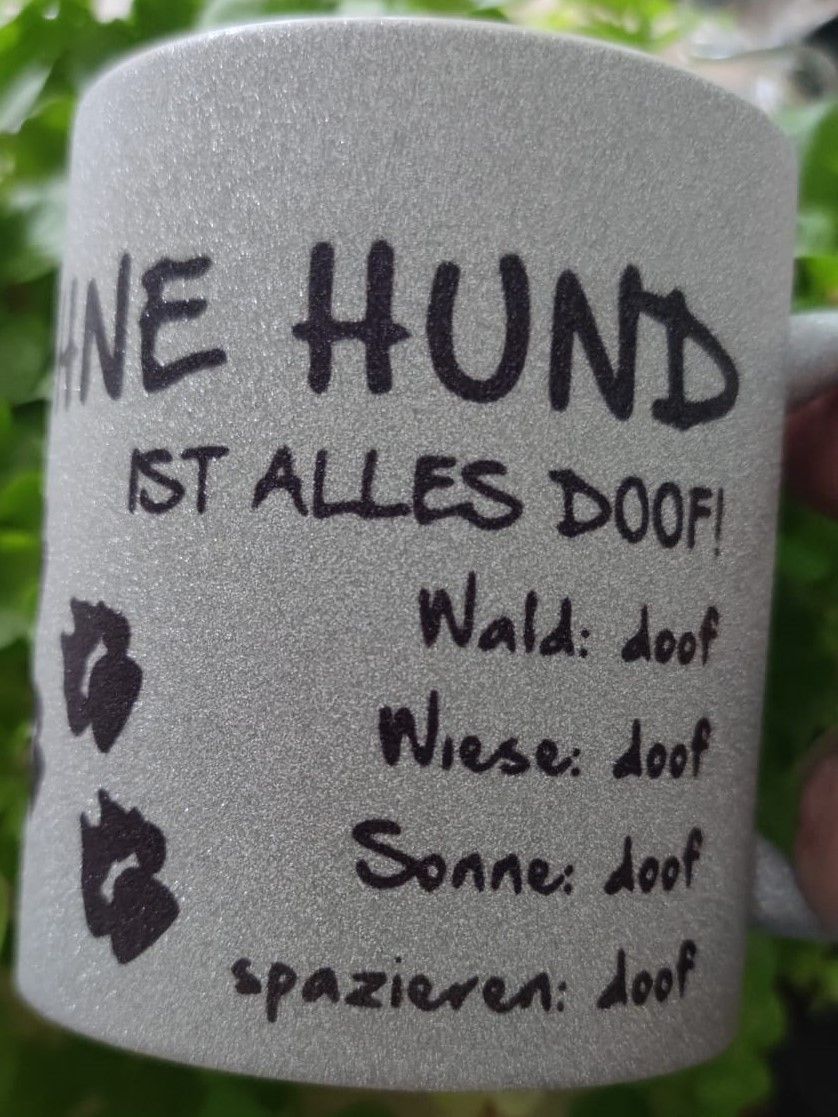 HNE HUND
IST ALLES DOOF!
Wald: doof
Wiese: doof
Sonne: doof
spazieren: doof